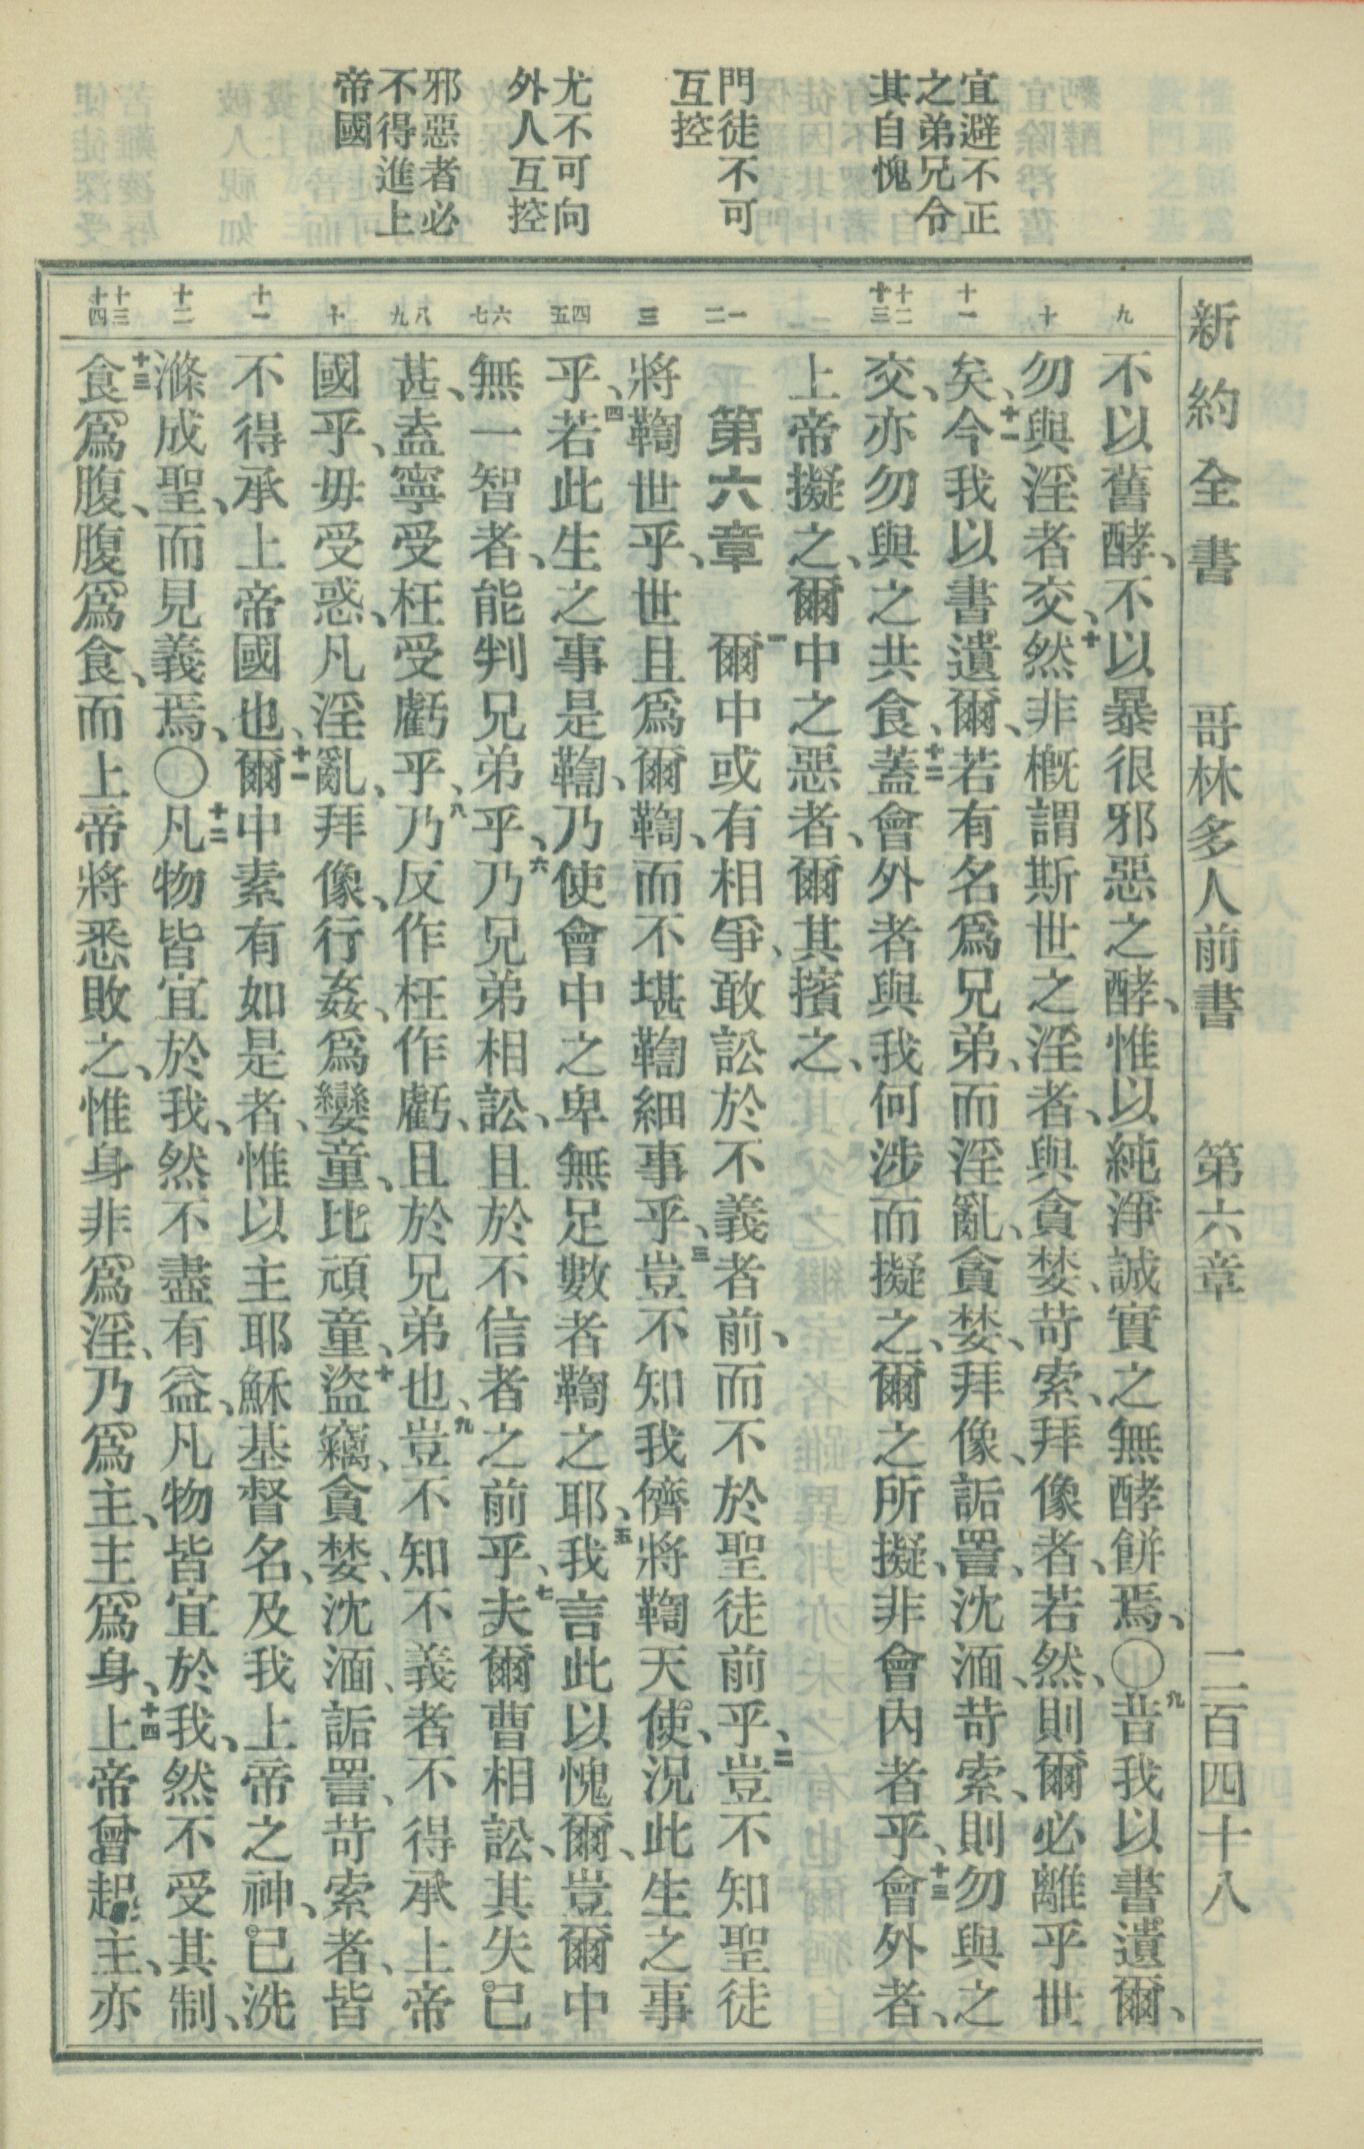 宜避不正
之弟兄令
其自愧
門徒不可
互控
尤不可向
外人互控
邪惡者必
不得進上
帝國
新約全書 哥林多人前書 第六章 二百四十八
九 十 十一 十二 十三 一 二 三 四 五 六 七 八 九 十 十一 十二 十三 十四
不以舊酵、不以暴很邪惡之酵、惟以純淨誠實之無酵餅焉、〇九昔我以書遺爾、
勿與淫者交、十然非概謂斯世之淫者、與貪婪、苛索、拜像者、若然、則爾必離乎世
矣、十一今我以書遺爾、若有名爲兄弟、而淫亂、貪婪、拜像、詬詈、沈湎、苛索、則勿與之
交、亦勿與之共食、十二蓋會外者與我何涉而擬之、爾之所擬、非會內者乎、十三會外者、
上帝擬之、爾中之惡者、爾其擯之、
第六章 一爾中或有相爭、敢訟於不義者前、而不於聖徒前乎、二豈不知聖徒
將鞫世乎、世且爲爾鞫、而不堪鞫細事乎、三豈不知我儕將鞫天使、況此生之事
乎、四若此生之事是鞫、乃使會中之卑無足數者鞫之耶、五我言此以愧爾、豈爾中
無一智者、能判兄弟乎、六乃兄弟相訟、且於不信者之前乎、七夫爾曹相訟、其失已
甚、盍寧受枉受虧乎、八乃反作枉作虧、且於兄弟也、九豈不知不義者不得承上帝
國乎、毋受惑、凡淫亂、拜像、行姦、爲孌童、比頑童、十盜竊、貪婪、沈湎、詬詈、苛索者、皆
不得承上帝國也、十一爾中素有如是者、惟以主耶穌基督名、及我上帝之神、已洗
滌成聖、而見義焉、〇十二凡物皆宜於我、然不盡有益、凡物皆宜於我、然不受其制、
十三食爲腹、腹爲食、而上帝將悉敗之、惟身非爲淫、乃爲主、主爲身、十四上帝曾起主、亦